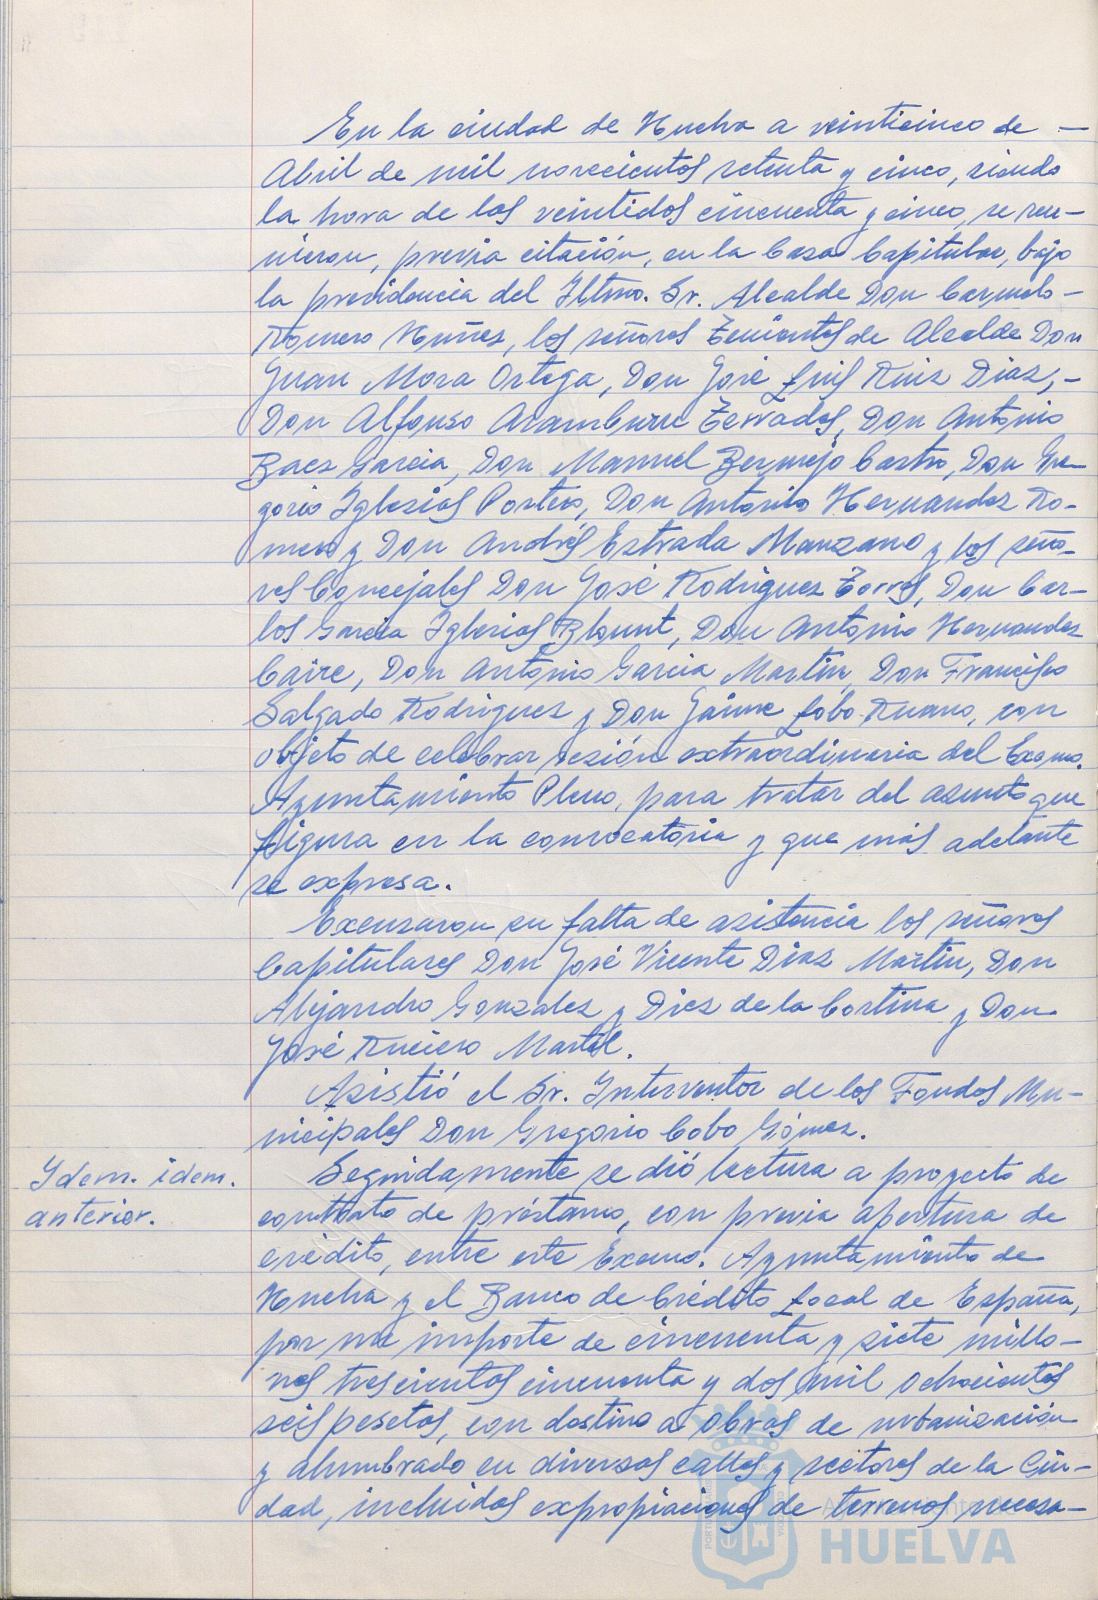 En la ciudad de Huelva a veinticinco de —
Abril de mil novecientos setenta y cinco, siendo
la hora de las veintidos cincuenta y cinco, se reu-
nieron, previa citación, en la Casa Capitular, bajo
la presidencia del Iltmo. Sr. Alcalde Don Carmelo -
Romero Nuñez, los señores Tenientes de Alcalde Don
Juan Mora Ortega, Don José Luis Ruiz Diaz, -
Don Alfonso Aramburu Terrades, Don Antonio
Baez Garcia, Don Manuel Bermejo Castro, Don Gre-
gorio Iglesias Portero, Don Antonio Hernandez Ro-
mero y Don Andrés Estrada Manzano y los seño-
res Concejales Don José Rodriguez Torres, Don Car-
los Garcia Iglesias Blount, Don Antonio Hernandez
Caire, Don Antonio Garcia Martin, Don Francisco
Salgado Rodriguez y Don Jaime Lobo Ruano, con
objeto de celebrar sesión extraordinaria del Excmo.
Ayuntamiento Pleno, para tratar del asunto que
figura en la convocatoria y que más adelante
se expresa.
Excusaron su falta de asistencia los señores
Capitulares Don José Vicente Diaz Martin, Don
Alejandro Gonzalez y Diez de la Cortina y Don
José Ruciero Martel.
Asistió el Sr. Interventor de los Fondos Mu-
nicipales Don Gregorio Cobo Gómez.
Idem. idem.
anterior.
Seguidamente se dió lectura a proyecto de
contrato de préstamo, con previa apertura de
crédito, entre este Excmo. Ayuntamiento de
Huelva y el Banco de Crédito Local de España,
por un importe de cincuenta y siete millo-
nes trescientas cincuenta y dos mil ochocientas
seis pesetas, con destino a obras de urbanización
y alumbrado en diversas calles y sectores de la Ciu-
dad, incluidas expropiaciones de terrenos necesa-
HUELVA